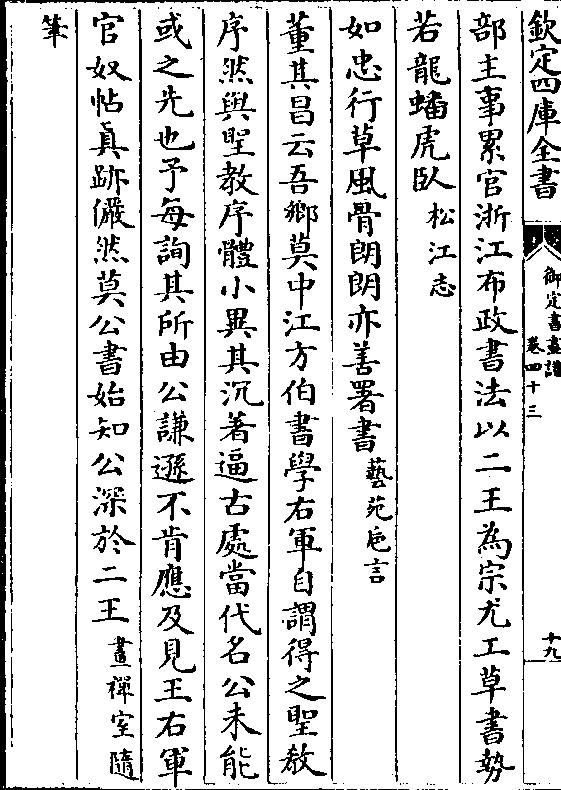 欽定四庫全書
御定書畫譜
卷四十三
十九
部主事累官浙江布政書法以二王為宗尤工草書勢
若龍蟠虎臥松江志
如忠行草風骨朗朗亦善署書藝苑巵言
董其昌云吾鄉莫中江方伯書學右軍自謂得之聖教
序然與聖教序體小異其沉著逼古處當代名公未能
或之先也予每詢其所由公謙遜不肯應及見王右軍
官奴帖真跡儼然莫公書始知公深於二王畫禪室隨
筆